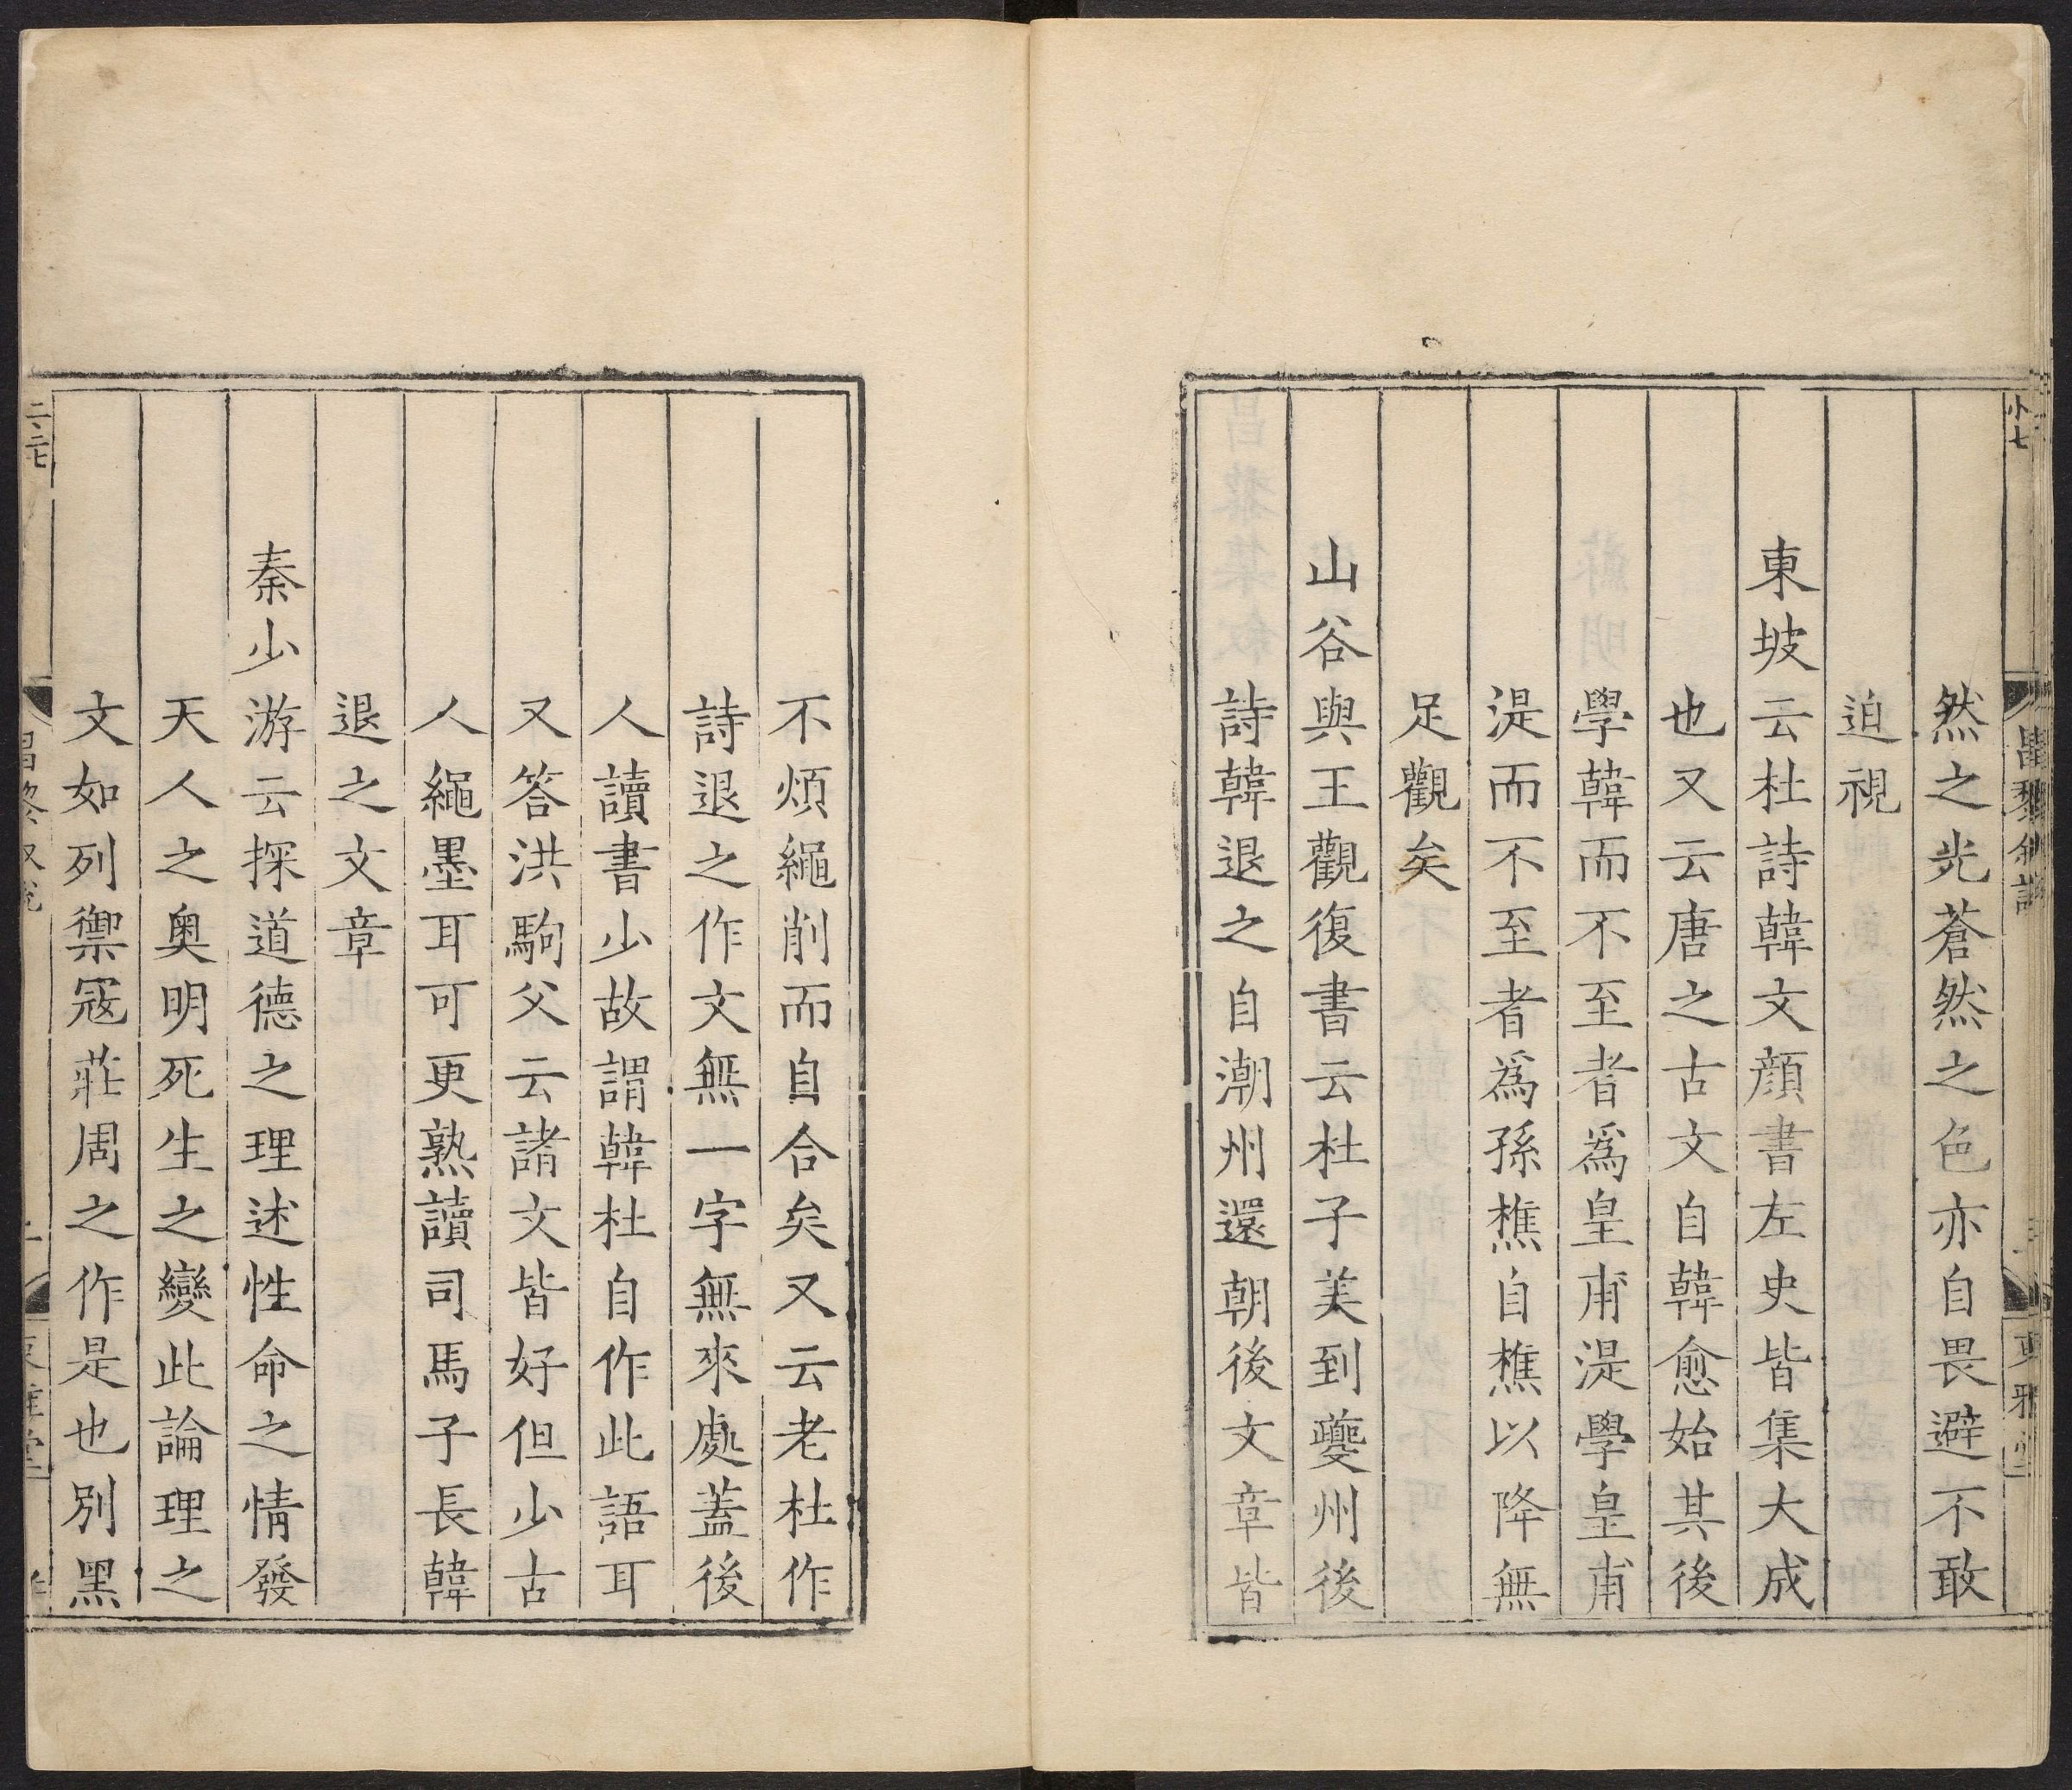 然之光蒼然之色亦自畏避不敢
迫視
東坡云杜詩韓文顔書左史皆集大成
也又云唐之古文自韓愈始其後
學韓而不至者爲皇甫湜學皇甫
湜而不至者爲孫樵自樵以降無
足觀矣
山谷與王觀復書云杜子美到夔州後
詩韓退之自潮州還朝後文章皆
不煩繩削而自合矣又云老杜作
詩退之作文無一字無來處蓋後
人讀書少故謂韓杜自作此語耳
又答洪駒父云諸文皆好但少古
人繩墨耳可更熟讀司馬子長韓
退之文章
秦少游云探道德之理述性命之情發
天人之奥明死生之變此論理之
文如列禦寇莊周之作是也別黑